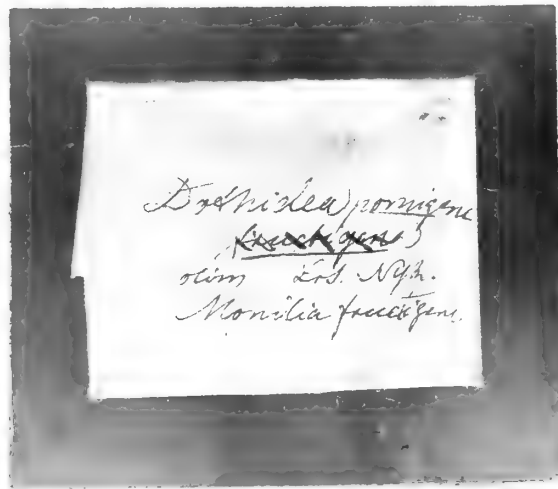 pomigena
fructigena)
olim Ers. Nyh.
Monilia fructigena.